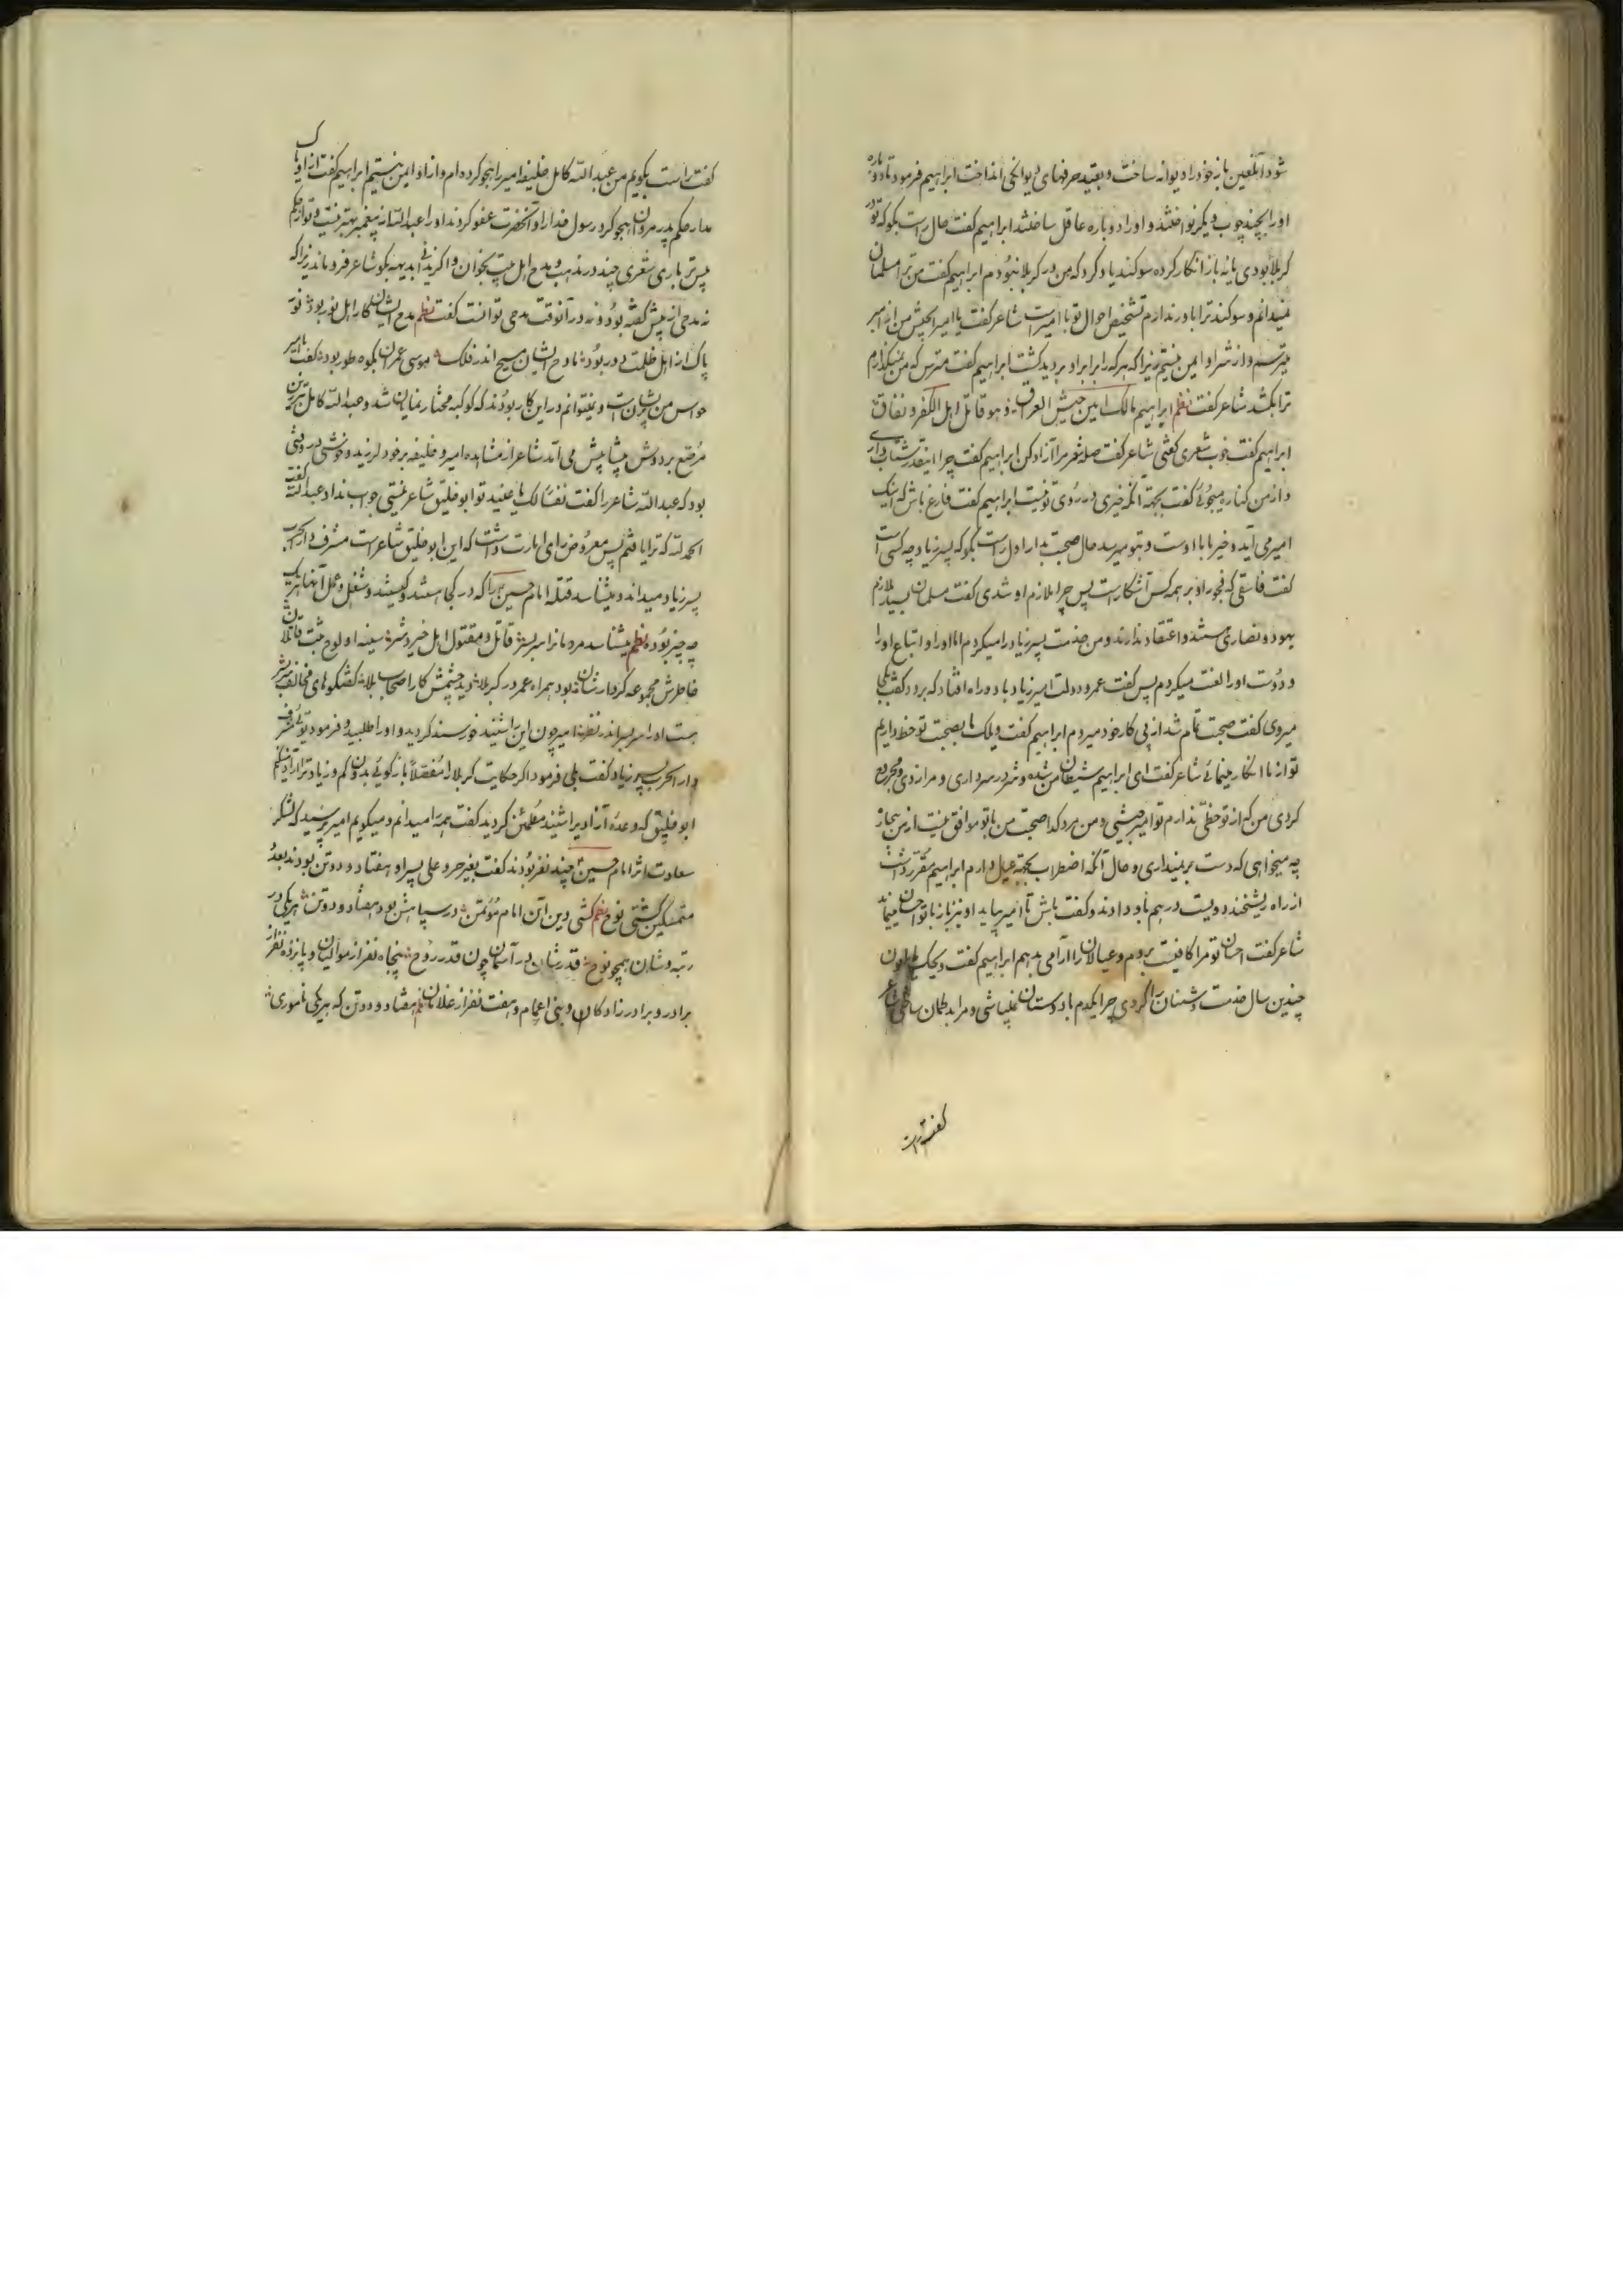 شود آنلعین باز خود را دیوانه ساخت و بقید حرفهای دیوانکی انداخت ابراهیم فرمود تا دوباره
اورا بچند چوب دیکر نواختند و اورا دوباره عاقل ساختند ابراهیم کفت حال راست بکو که تو در
کربلا بودی یا نه باز انکار کرده سوکند یاد کرد که من در کربلا نبودم ابراهیم کفت من ترا مسلمان
نمیدانم و سوکند ترا باور ندارم تشخیص احوال تو با امیر است شاعر کفت یا امیر الجیش من از امیر
میترسم و از شر او ایمن نیستم زیرا که هر که را برابر او بردید کشت ابراهیم کفت مترس که من نمیکذارم
ترا بکشد شاعر کفت نظم ابراهیم مالک امین جیش العراق و هو قاتل اهل الکفر و نفاق
ابراهیم کفت خوب شعری کفتی شاعر کفت صله شعر مرا آزاد کن ابراهیم کفت چرا اینقدر شتاب داری
و از من کناره میجوئی کفت بجهة آنکه خیری در روی تو نیست ابراهیم کفت فارغ باش که اینک
امیر می آید و خیر با اوست و بتو میرسد حال صحبت بدار اول راست بکو که پسر زیاد چه کسی است
کفت فاسقی که فجور او بر همه کس آشکار است پس چرا ملازم او شدی کفت مسلمان بسیار ملازم
یهود و نصاری هستند و اعتقاد ندارند و من خدمت پسر زیاد را میکردم اما اورا و اتباع اورا
و دوست اورا لعنت میکردم پس کفت عمر و دولت امیر زیاد باد و راه افتاد که برود کفت بکجا
میروی کفت صحبت تمام شد از پی کار خود میروم ابراهیم کفت ویلک ما بصحبت تو حظ داریم
تو از ما انکار مینمائی شاعر کفت ای ابراهیم شیطان من شده و شر در سر داری و مرا زدی و مجروح
کردی من که از تو حظی ندارم تو امیر جیشی و من مرد کدا صحبت من با تو موافق نیست از من بیچاره
چه میخواهی که دست بر نمیداری و حال آنکه اضطراب بجهة عیال دارم ابراهیم مقرر داشت
از راه ریشخند دویست درهم باو دادند و کفت باش تا امیر بیاید او نیز باز با تو احسان مینماید
شاعر کفت احسان تو مرا کافیست بروم و عیالان را آرامی بدهم ابراهیم کفت ویحک ای ملعون
چندین سال خدمت دشمنان ما کردی چرا یکدم با دوستان نمیباشی و مرا بد کمان ساختی شاعر
کفت راست
کفت راست بکویم من عبد الله کامل خلیفه امیر را هجو کرده ام و از او ایمن نیستم ابراهیم کفت از او باک
مدار حکم پدر مروان هجو کرد رسول خدا را و آنحضرت عفو کردند اورا عبدالله از پیغمبر بهتر نیست و تو از حکم
پس تر باری شعری چند در مذهب و مدح اهل بیت بخوان و اکر ندانی بدیهه بکو شاعر فرو ماند زیرا که
نه مدحی از پیش کفته بود و نه در آنوقت مدحی توانست کفت نظم مدح ایشان کار اهل نور بود تو
پاک از اهل ظلمت دور بود مادح ایشان مسیح اندر فلک موسی عمران بکوه طور بود کفت یا امیر
حواس من پریشان است و نمیتوانم در این کار بودند که کوکبه مختار نمایان شد و عبدالله کامل تبرزین
مرصع بر دوش پیشاپیش می آمد شاعر از مشاهده امیر و خلیفه بر خود لرزید و خوش در وقتی
بود که عبدالله شاعر را کفت نفسا لک یا عنید تو ابو خلیق شاعر نیستی جواب نداد عبدالله کفت
الحمد لله که ترا یافتم پس معروض رای امارت داشت که این ابو خلیق شاعر است مشرف دار الحرب
پسر زیاد میداند و میشناسد قتله امام حسین را که در کجا هستند و کیستند و شغل و عمل آنها هر یک
چه چیز بوده نظم میشناسد مردمانرا سر بسر قاتل و مقتول اهل خیر و شر سینه او لوح ثبت قاتلان
خاطرش مجموعه کردارشان بود همراه عمر در کربلا دید چشمش کار اصحاب بلا کفتکوهای مخالف سر بسر
هست اورا سر بسر اندر نظر امیر چون این را شنید خورسند کردید و اورا طلبید و فرمود توئی مشرف
دار الحرب پسر زیاد کفت بلی فرمود اکر حکایت کربلا را مفصلا بازکوئی بدون کم و زیاد ترا آزاد میکنم
ابو خلیق که وعده آزادیرا شنید مطمئن کردید کفت همه را میدانم و میکویم امیر پرسید که لشکر
سعادت اثر امام حسین چند نفر بودند کفت بغیر حر و علی پسر او هفتاد و دو تن بودند بعد
متمسکین کشتی نوح نظم کشتی دین آن امام مؤتمن در سپاهش بود هفتاد و دو تن هر یکی در
رتبه و شان همچو نوح قدرشان در آسمان چون قدر روح پنجاه نفر از موالیان و پانزده نفر از
برادر و برادر زادکان و بنی اعمام و هفت نفر از غلامان نظم هفتاد و دو تن که هر یکی ناموری